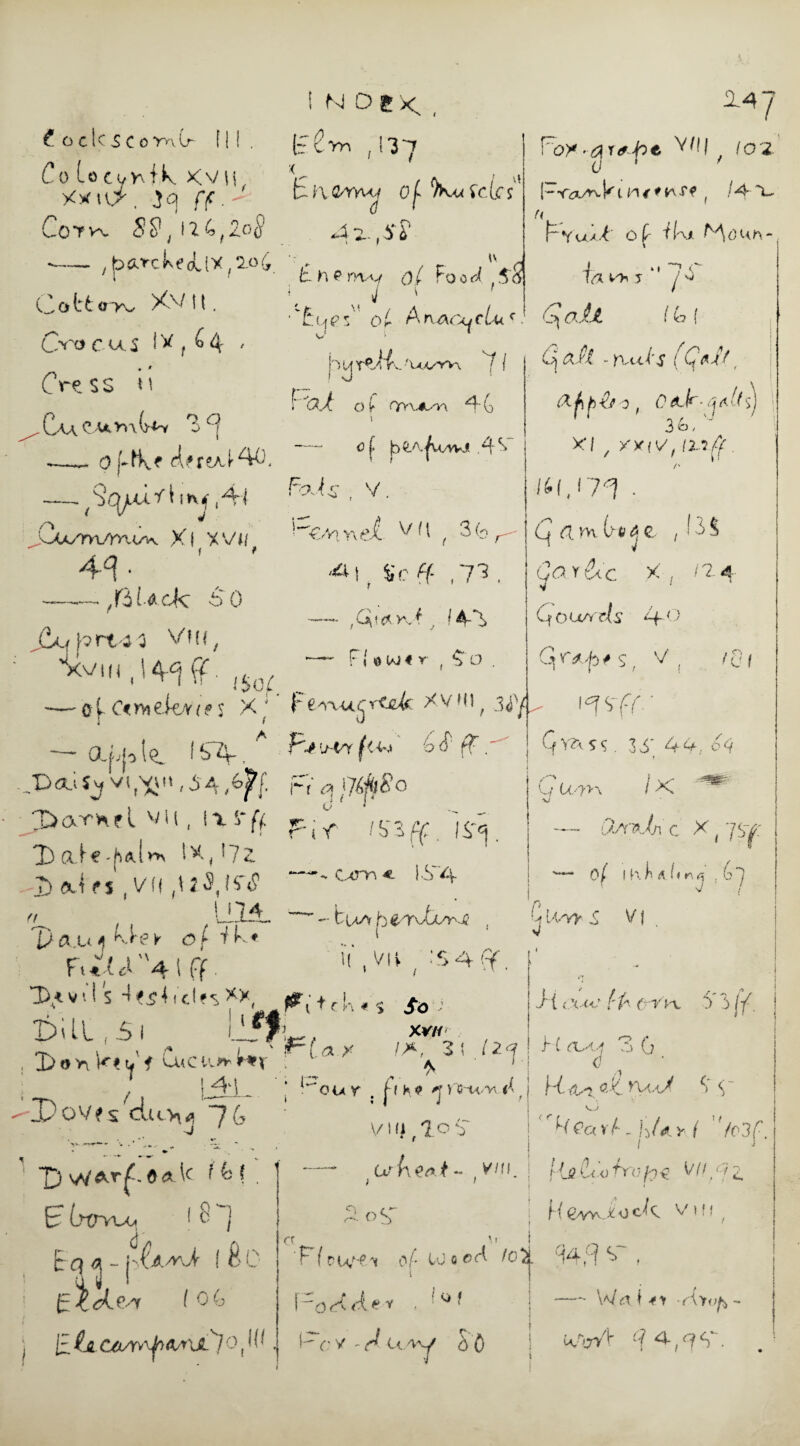 INDEX,
247
Cockscomb 111.
Colocynth XVII,
XXIV. 39 ff.
Corn 88, 126, 208
—— , parched IX, 206
Cotton XVII.
Crocus IX, 64
Cress 11
Cucumber 39
—— of the desert 40.
—— , Squirting, 41
Cummin XI, XVII,
49.
—— , black 50
Cypress VIII,
XVIII, 149 ff.
—— of Cemeteries X, 150.
— apple 154.
Daisy VI, 54, 6
Darnel VII, 125 ff
Date-palm IX, 172
Dates, VII, 128, 158
174
"Daughter of the
Field" 41 ff.
Devil's testicles XX,
Dill, 51
Donkey's Cucumber
141
Doves dung 76
Dwarf-oak 161.
Ebony 187
Egg-plant 180
Elder 106
Elecampane 70, 111
Elm, 137
"Enemy of Muscles"
42, 58
"Enemy of Food", 58
"Eyes" of Anacyclus
pyrethrum 71
Fat of myrrh 46
— of perfume 45
Fats, V.
Fennel VII, 36,
41, 50 ff, 73,
—— , Giant, 143
—— Flower, 50.
Fenugreek XVIII,
Feverfew 68 ff.
Fig 176 ff, 180
Fir 153 ff. 159.
——, cone 154
—— - turpentine,
II, VII, 54 ff.
Fitches 50
XVII
Flax IX, 31, 129
Flour, fine ground,
VIII, 205
—— , wheat-, VIII.
205
"Flower of wood" 102
Fodder, 101
Fox-dung 80
Fox-grape VIII, 102
Frankincense, 142
"Fruit of the Moun-
tains" 75
Gall 161
Gall-nuts (Gall,
apples, Oak-galls)
36,
XI, XXIV, 122 ff.
161, 179.
Gamboge, 138
Garlic X, 124
Gourds 40
Grapes, V, 181
195 ff.
Grass. 35, 44, 69
Gum IX
—— Arabic X, 75 ff
— of inhaling, 67
Gums VI.
Hawthorn 53 ff.
Hay 36
Hazel nut 55
"Heart-plant" 103 f.
Heliotrope VII, 92
Hemlock VIII,
94, 95,
—— Water-drop-
wort 94, 95.